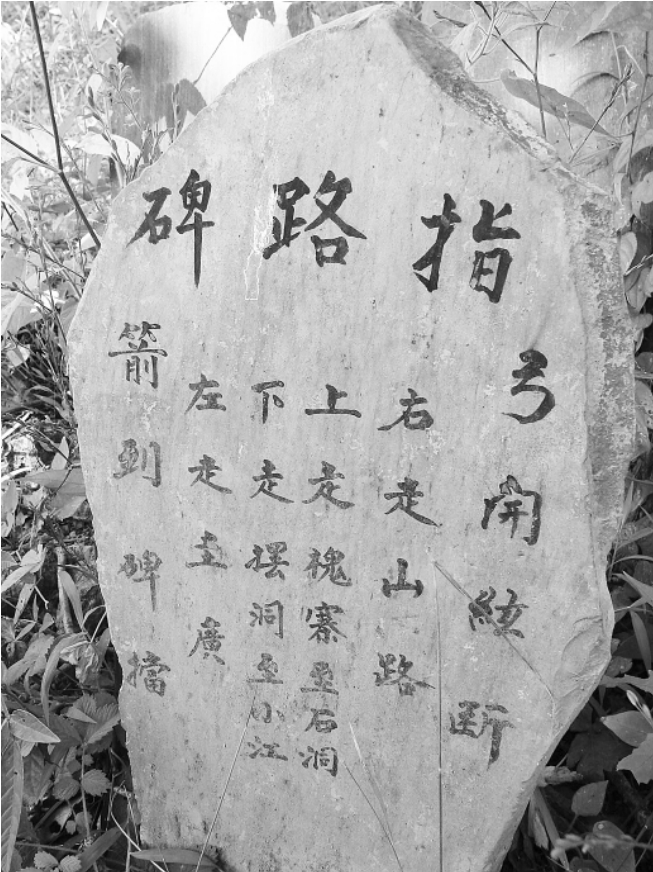 指路碑
弓開絃断
右走山路
上走槐寨至石洞
下走摆洞至小江
左走圭廣
箭到碑擋